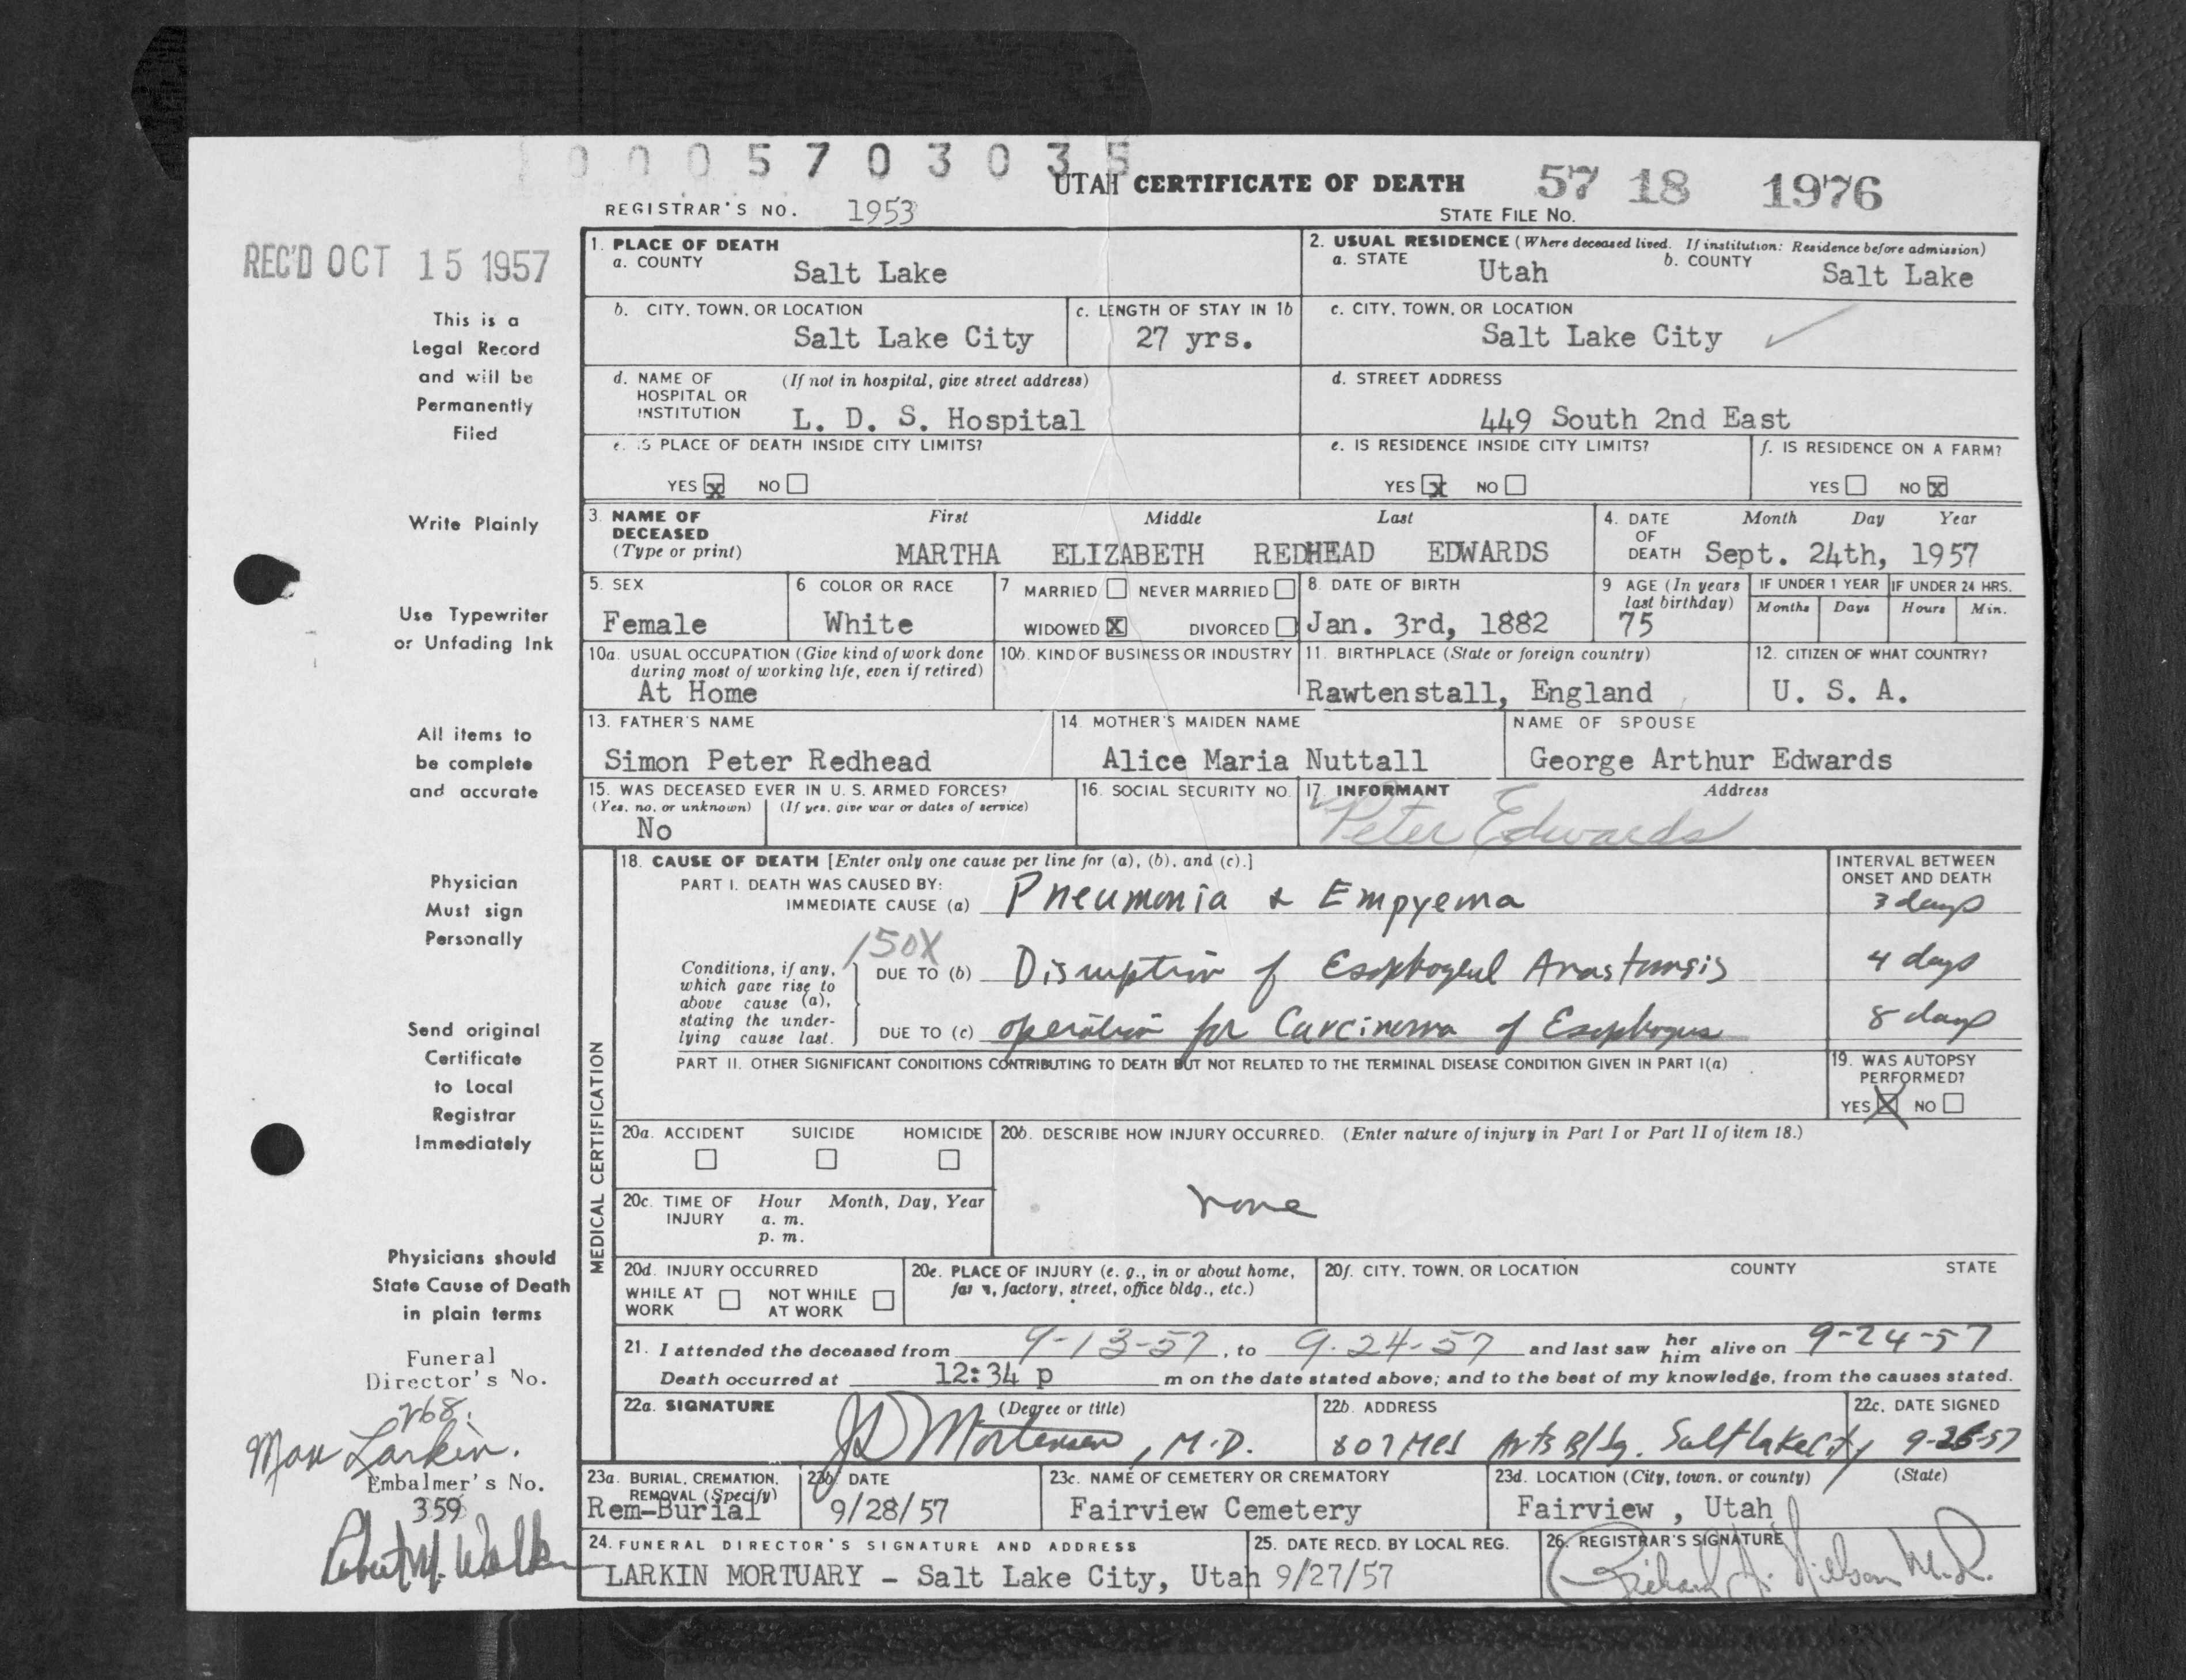 0 0 0 5 7 0 3 0 3 5
UTAH CERTIFICATE OF DEATH 57 18 1976
REGISTRAR'S NO. 1953
STATE FILE NO.
REC'D OCT 15 1957
This is a
Legal Record
and will be
Permanently
Filed
Write Plainly
Use Typewriter
or Unfading Ink
All items to
be complete
and accurate
Physician
Must sign
Personally
Send original
Certificate
to Local
Registrar
Immediately
Physicians should
State Cause of Death
in plain terms
Funeral
Director's No.
268.
Max Larkin.
Embalmer's No.
359
1. PLACE OF DEATH
a. COUNTY
Salt Lake
2. USUAL RESIDENCE (Where deceased lived. If institution: Residence before admission)
a. STATE Utah b. COUNTY Salt Lake
b. CITY, TOWN, OR LOCATION
Salt Lake City
c. LENGTH OF STAY IN 1b
27 yrs.
c. CITY, TOWN, OR LOCATION
Salt Lake City
d. NAME OF (If not in hospital, give street address)
HOSPITAL OR
INSTITUTION L. D. S. Hospital
d. STREET ADDRESS
449 South 2nd East
e. IS PLACE OF DEATH INSIDE CITY LIMITS?
YES X NO
e. IS RESIDENCE INSIDE CITY LIMITS?
YES X NO
f. IS RESIDENCE ON A FARM?
YES NO X
3. NAME OF DECEASED (Type or print)
First Middle Last
MARTHA ELIZABETH REDHEAD EDWARDS
4. DATE OF DEATH Month Day Year
Sept. 24th, 1957
5. SEX
Female
6 COLOR OR RACE
White
7 MARRIED NEVER MARRIED
WIDOWED X DIVORCED
8. DATE OF BIRTH
Jan. 3rd, 1882
9 AGE (In years last birthday)
75
IF UNDER 1 YEAR
Months Days
IF UNDER 24 HRS.
Hours Min.
10a. USUAL OCCUPATION (Give kind of work done
during most of working life, even if retired)
At Home
10b. KIND OF BUSINESS OR INDUSTRY
11. BIRTHPLACE (State or foreign country)
Rawtenstall, England
12. CITIZEN OF WHAT COUNTRY?
U. S. A.
13. FATHER'S NAME
Simon Peter Redhead
14. MOTHER'S MAIDEN NAME
Alice Maria Nuttall
NAME OF SPOUSE
George Arthur Edwards
15. WAS DECEASED EVER IN U. S. ARMED FORCES?
(Yes, no, or unknown) (If yes, give war or dates of service)
No
16. SOCIAL SECURITY NO.
17. INFORMANT Address
Peter Edwards
MEDICAL CERTIFICATION
18. CAUSE OF DEATH [Enter only one cause per line for (a), (b), and (c).]
PART I. DEATH WAS CAUSED BY:
IMMEDIATE CAUSE (a) Pneumonia & Empyema
INTERVAL BETWEEN
ONSET AND DEATH
3 days
150X
Conditions, if any,
which gave rise to
above cause (a),
stating the under-
lying cause last.
DUE TO (b) Disruption of Esophageal Anastomosis 4 days
DUE TO (c) operation for Carcinoma of Esophagus 8 days
PART II. OTHER SIGNIFICANT CONDITIONS CONTRIBUTING TO DEATH BUT NOT RELATED TO THE TERMINAL DISEASE CONDITION GIVEN IN PART I(a)
19. WAS AUTOPSY
PERFORMED?
YES X NO
20a. ACCIDENT SUICIDE HOMICIDE
20b. DESCRIBE HOW INJURY OCCURRED. (Enter nature of injury in Part I or Part II of item 18.)
none
20c. TIME OF INJURY Hour Month, Day, Year
a. m.
p. m.
20d. INJURY OCCURRED
WHILE AT WORK NOT WHILE AT WORK
20e. PLACE OF INJURY (e. g., in or about home,
farm, factory, street, office bldg., etc.)
20f. CITY, TOWN, OR LOCATION COUNTY STATE
21. I attended the deceased from 9-13-57, to 9-24-57 and last saw her him alive on 9-24-57
Death occurred at 12:34 p m on the date stated above; and to the best of my knowledge, from the causes stated.
22a. SIGNATURE (Degree or title)
Mortensen, M.D.
22b. ADDRESS
807 Med Arts Bldg. Salt Lake City
22c. DATE SIGNED
9-26-57
23a. BURIAL, CREMATION,
REMOVAL (Specify)
Rem-Burial
23b. DATE
9/28/57
23c. NAME OF CEMETERY OR CREMATORY
Fairview Cemetery
23d. LOCATION (City, town, or county) (State)
Fairview , Utah
24. FUNERAL DIRECTOR'S SIGNATURE AND ADDRESS
LARKIN MORTUARY - Salt Lake City, Utah
25. DATE RECD. BY LOCAL REG.
9/27/57
26. REGISTRAR'S SIGNATURE
Richard Nielson M.D.